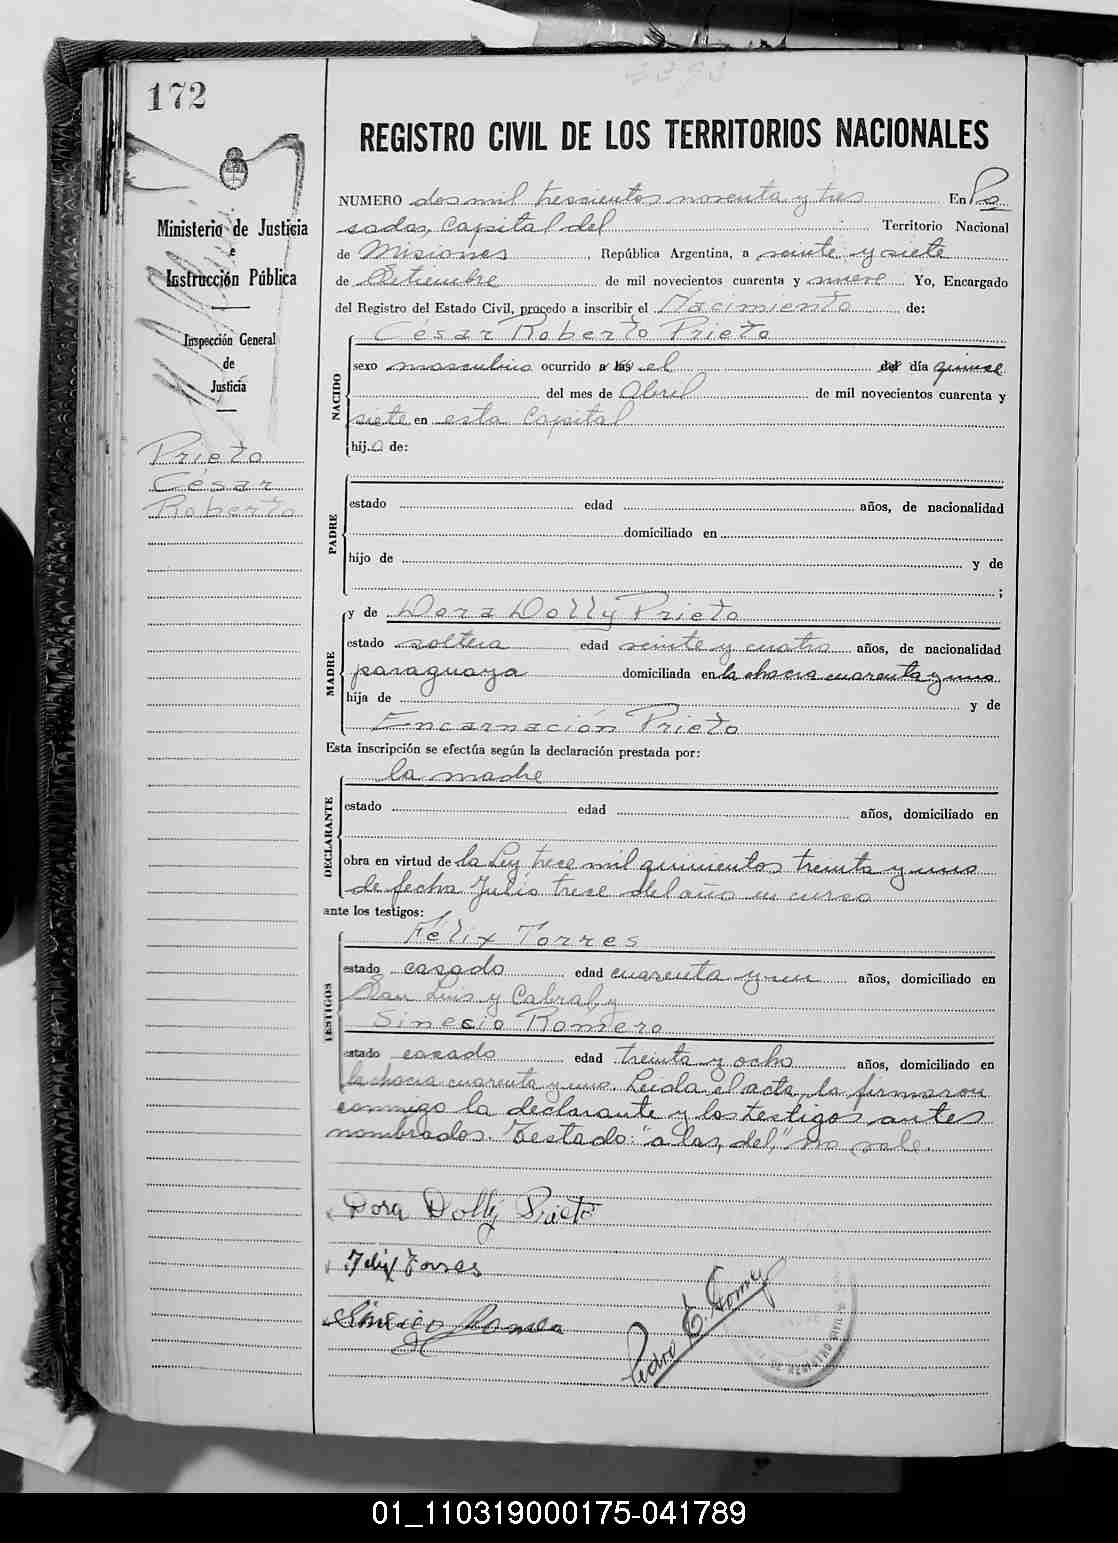 172
2393
REGISTRO CIVIL DE LOS TERRITORIOS NACIONALES
Ministerio de Justicia
e
Instrucción Pública
Inspección General
de
Justicia
Prieto
César
Roberto
NUMERO dos mil trescientos noventa y tres En Po
sadas, Capital del Territorio Nacional
de Misiones República Argentina, a veinte y siete
de Setiembre de mil novecientos cuarenta y nueve Yo, Encargado
del Registro del Estado Civil, procedo a inscribir el Nacimiento de:
César Roberto Prieto
NACIDO
sexo masculino ocurrido a las el del día quince
del mes de Abril de mil novecientos cuarenta y
siete en esta Capital
hijo de:
PADRE
estado edad años, de nacionalidad
domiciliado en
hijo de y de
;
MADRE
y de Dora Dolly Prieto
estado soltera edad veinte y cuatro años, de nacionalidad
paraguaya domiciliada en la chacra cuarenta y uno
hija de y de
Encarnación Prieto
Esta inscripción se efectúa según la declaración prestada por:
la madre
DECLARANTE
estado edad años, domiciliado en
obra en virtud de la Ley trece mil quinientos treinta y uno
de fecha Julio trece del año en curso
ante los testigos:
TESTIGOS
Félix Torres
estado casado edad cuarenta y un años, domiciliado en
San Luis y Cabral, y
Sinecio Romero
estado casado edad treinta y ocho años, domiciliado en
la chacra cuarenta y uno. Leída el acta, la firmaron
conmigo la declarante y los testigos antes
nombrados. Testado: "a las, del," no vale.
Dora Dolly Prieto
Felix Torres
Sinecio Romero
Pedro E. Gomez
01_110319000175-041789